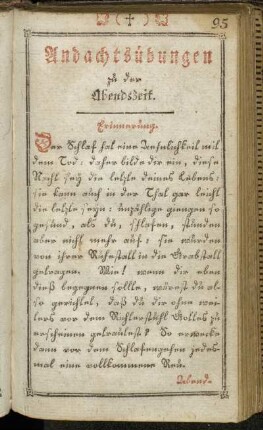 ( + )
95
Andachtsübungen
zu der
Abendszeit.
Erinnerung.
Der Schlaf hat eine Aehnlichkeit mit
dem Tod, daher bilde dir ein, diese
Nacht sey die letzte deines Lebens:
sie kann auch in der That gar leicht
die letzte seyn: unzählige giengen so
gesund, als du, schlafen, stunden
aber nicht mehr auf: sie wurden
von ihrer Ruhestatt in die Grabstatt
getragen. Wie! wenn dir eben
dieß begegnen sollte, wärest du al-
so gerichtet, daß du dir ohne wei-
ters vor dem Richterstuhl Gottes zu
erscheinen getrautest? So erwecke
dann vor dem Schlafengehen jedes-
mal eine vollkommene Reu.
Abend-